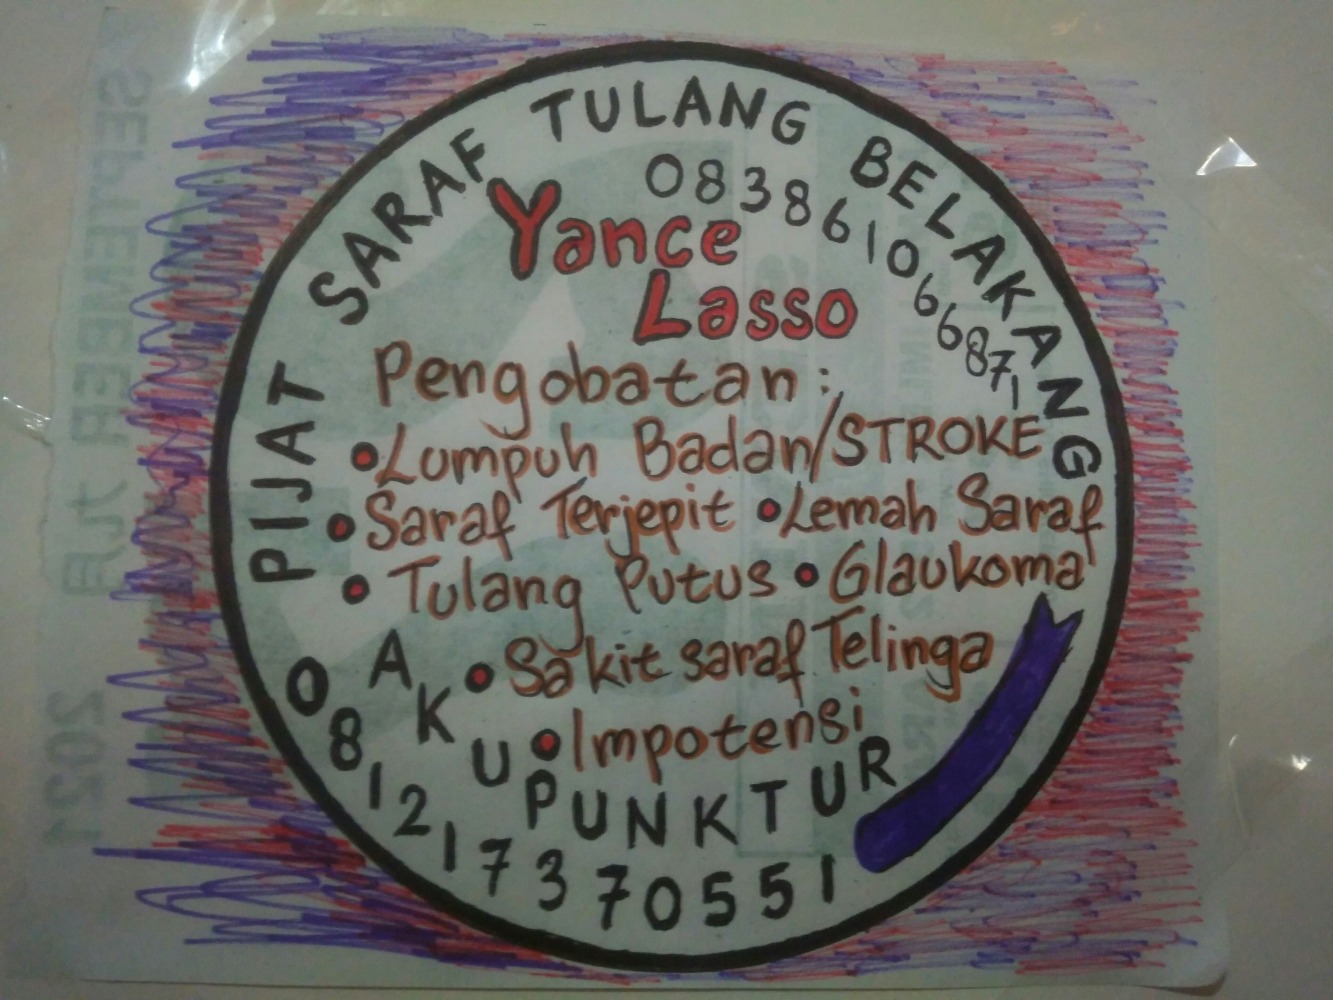 PIJAT SARAF TULANG BELAKANG
083861066871
Yance
Lasso
Pengobatan:
•Lumpuh Badan/STROKE
•Saraf Terjepit •Lemah Saraf
•Tulang Putus •Glaukoma
•Sakit saraf Telinga
•Impotensi
AKUPUNKTUR
081217370551
SEPTEMBER
2021